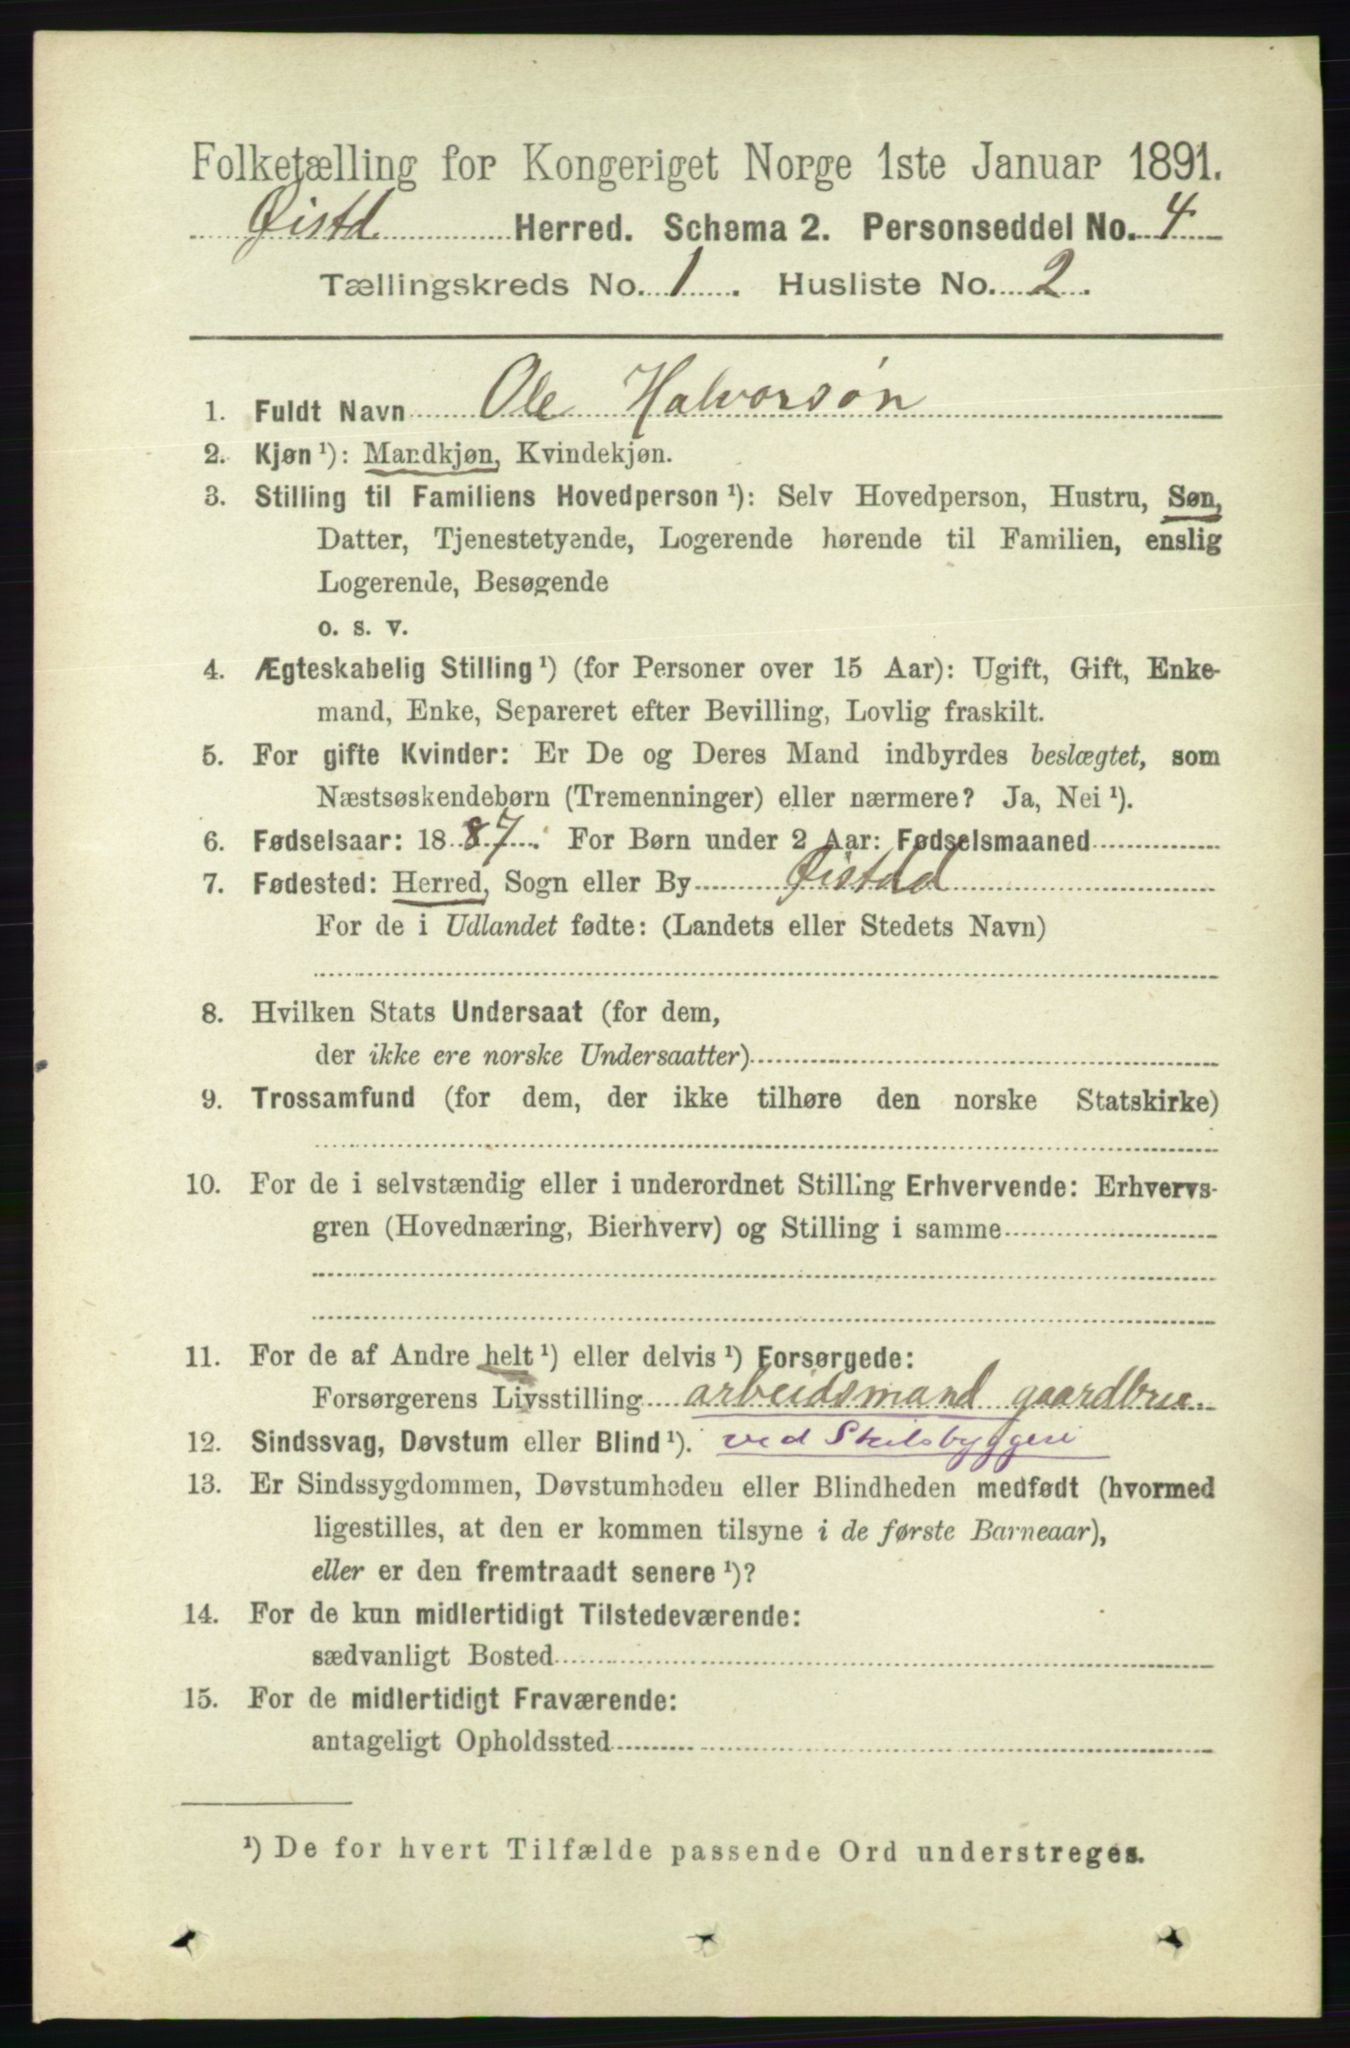 Folketælling for Kongeriget Norge 1ste Januar 1891.
Øistd Herred. Schema 2. Personseddel No. 4
Tællingskreds No. 1. Husliste No. 2.
1. Fuldt Navn Ole Halvorsøn
2. Kjøn ¹): Mandkjøn, Kvindekjøn.
3. Stilling til Familiens Hovedperson ¹): Selv Hovedperson, Hustru, Søn,
Datter, Tjenestetyende, Logerende hørende til Familien, enslig
Logerende, Besøgende
o. s. v.
4. Ægteskabelig Stilling ¹) (for Personer over 15 Aar): Ugift, Gift, Enke-
mand, Enke, Separeret efter Bevilling, Lovlig fraskilt.
5. For gifte Kvinder: Er De og Deres Mand indbyrdes beslægtet, som
Næstsøskendebørn (Tremenninger) eller nærmere? Ja, Nei ¹).
6. Fødselsaar: 1887. For Børn under 2 Aar: Fødselsmaaned
7. Fødested: Herred, Sogn eller By Øistdd
For de i Udlandet fødte: (Landets eller Stedets Navn)
8. Hvilken Stats Undersaat (for dem,
der ikke ere norske Undersaatter)
9. Trossamfund (for dem, der ikke tilhøre den norske Statskirke)
10. For de i selvstændig eller i underordnet Stilling Erhvervende: Erhvervs-
gren (Hovednæring, Bierhverv) og Stilling i samme
11. For de af Andre helt ¹) eller delvis ¹) Forsørgede:
Forsørgerens Livsstilling arbeidsmand gaardbru.
12. Sindssvag, Døvstum eller Blind ¹). ved Skibsbyggeri
13. Er Sindssygdommen, Døvstumheden eller Blindheden medfødt (hvormed
ligestilles, at den er kommen tilsyne i de første Barneaar),
eller er den fremtraadt senere ¹)?
14. For de kun midlertidigt Tilstedeværende:
sædvanligt Bosted
15. For de midlertidigt Fraværende:
antageligt Opholdssted
¹) De for hvert Tilfælde passende Ord understreges.